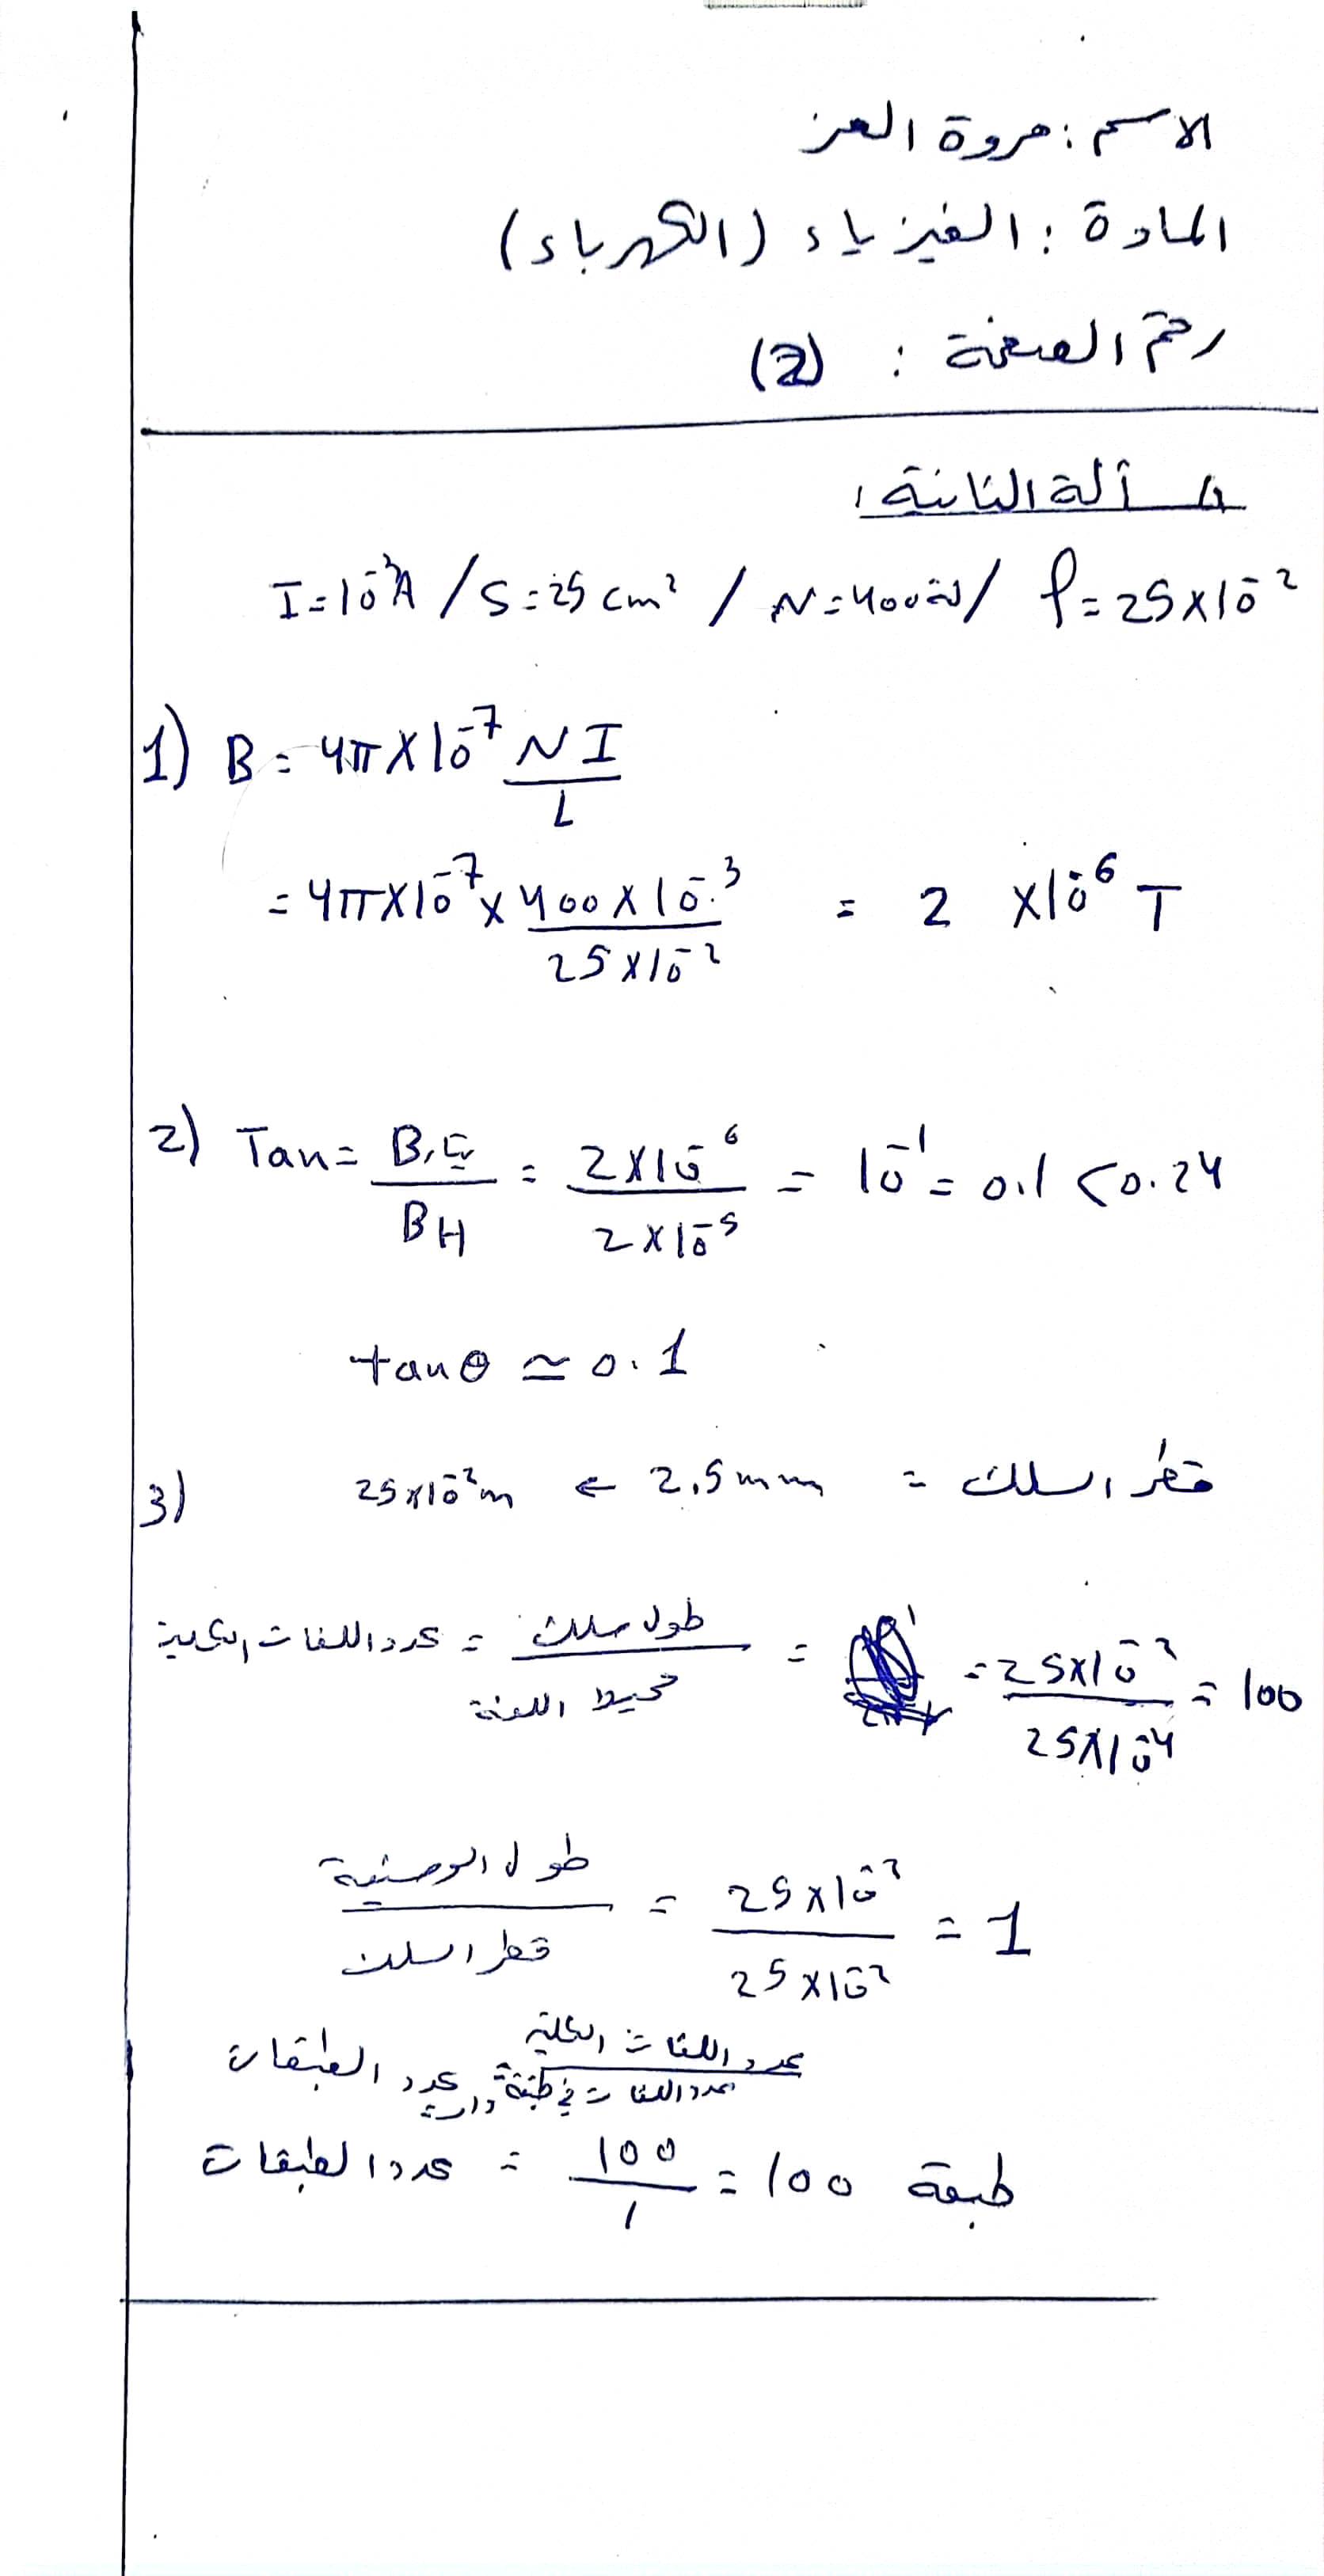 الاسم : مروة العز
المادة : الفيزياء (الكهرباء)
رقم الصفحة : (2)
مسألة الثانية :
I = 10⁻³A / S = 25 cm² / N = 400 لفة / ℓ = 25 × 10⁻²
1) B = 4π × 10⁻⁷ NI / L
= 4π × 10⁻⁷ × 400 × 10⁻³ / 25 × 10⁻² = 2 × 10⁻⁶ T
2) Tan = B / BH = 2 × 10⁻⁶ / 2 × 10⁻⁵ = 10⁻¹ = 0.1 < 0.24
tan θ ≃ 0.1
3) قطر السلك = 2,5 mm ← 25 × 10⁻² m
عدد اللفات الكلية = طول سلك / محيط اللفة = = 25 × 10⁻² / 25 × 10⁻⁴ = 100
طول الوشيعة / قطر السلك = 25 × 10⁻² / 25 × 10⁻² = 1
عدد الطبقات عدد اللفات الكلية / عدد اللفات في طبقة واحدة
عدد الطبقات = 100 / 1 = 100 طبقة